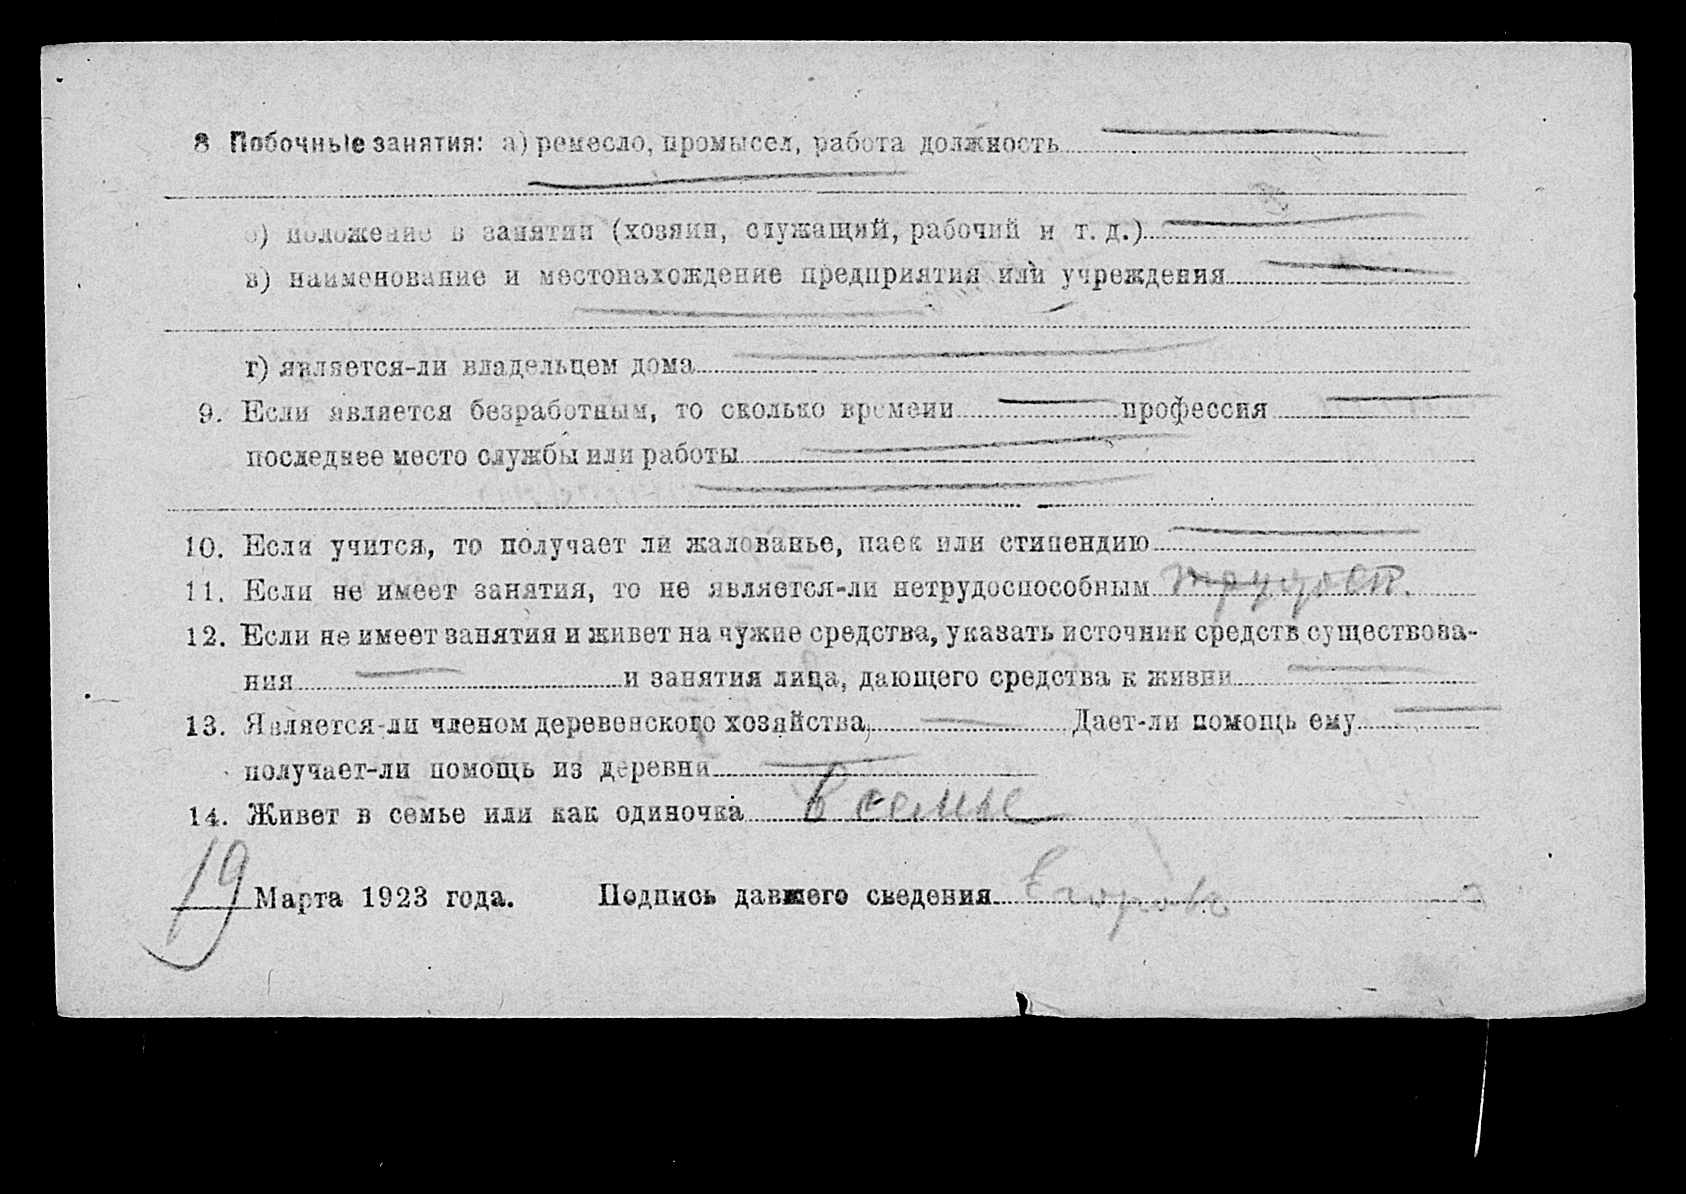 8 Побочные занятия: а) ремесло, промысел, работа должность
б) положение в занятии (хозяин, служащий, рабочий и т. д.)
в) наименование и местонахождение предприятия или учреждения
г) является-ли владельцем дома
9. Если является безработным, то сколько времени профессия
последнее место службы или работы
10. Если учится, то получает ли жалованье, паек или стипендию
11. Если не имеет занятия, то не является-ли нетрудоспособным
12. Если не имеет занятия и живет на чужие средства, указать источник средств существова-
ния и занятия лица, дающего средства к жизни
13. Является-ли членом деревенского хозяйства, Дает-ли помощь ему
получает-ли помощь из деревни
14. Живет в семье или как одиночка в семье
19 Марта 1923 года. Подпись давшего сведения Егоровъ